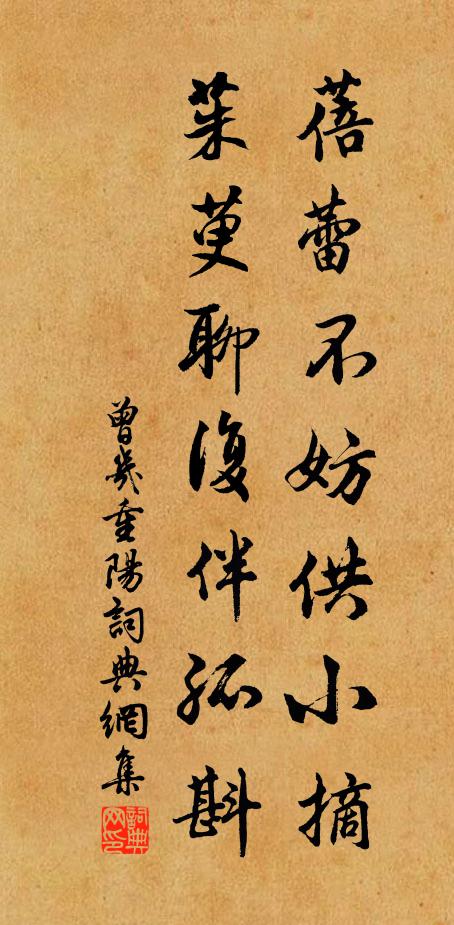 蓓蕾不妨供小摘
茱萸聊復伴孤斟
曾幾重陽詞典網集
詞典网印